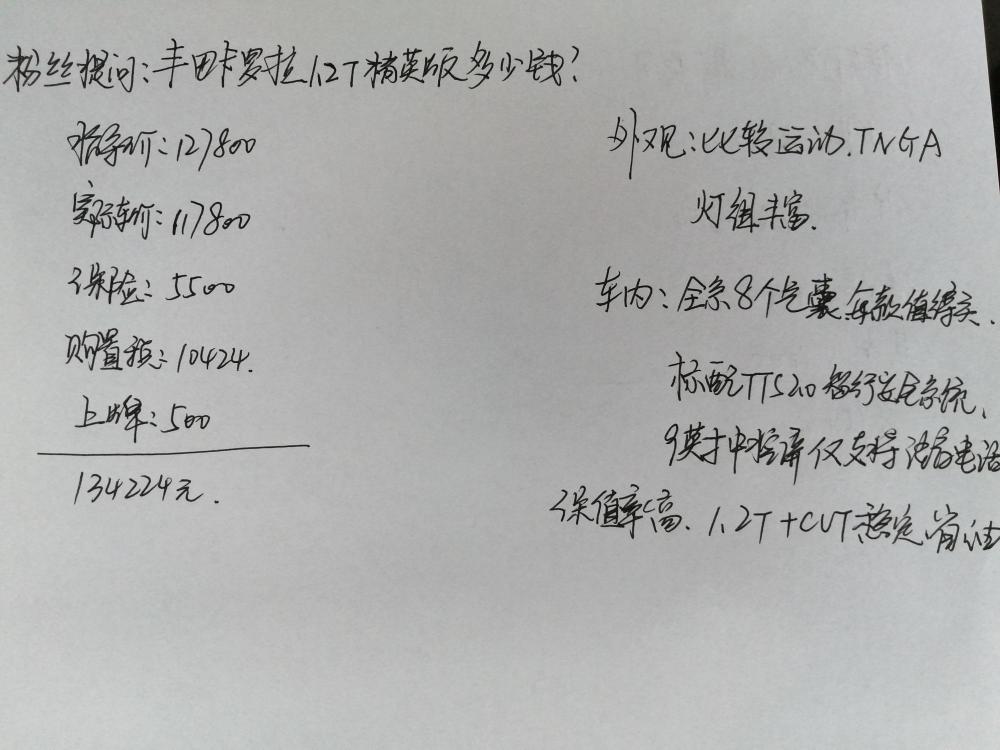 粉丝提问:丰田卡罗拉1.2T精英版多少钱?
指导价:127800
实际车价:117800
保险:5500
购置税:10424.
上牌:500
134224元.
外观:比较运动.TNGA
灯组丰富.
车内:全系8个气囊 每款值得买.
标配TTS2.0智行安全系统、
9英寸中控屏仅支持语音电话
保值率高、1.2T+CVT稳定省油